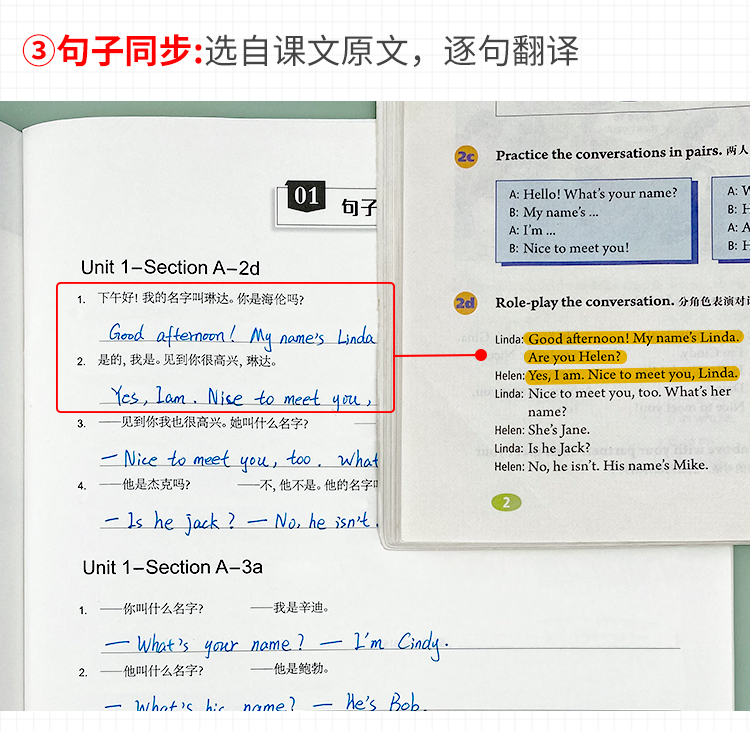 ③句子同步:选自课文原文，逐句翻译
01
句子
Unit 1-Section A-2d
1. 下午好! 我的名字叫琳达。你是海伦吗?
Good afternoon! My name's Linda
2. 是的, 我是。见到你很高兴, 琳达。
Yes, I am. Nice to meet you,
3. ——见到你我也很高兴。她叫什么名字?
— Nice to meet you, too. What
4. ——他是杰克吗? ——不, 他不是。他的名字
— Is he jack? — No, he isn't.
Unit 1-Section A-3a
1. ——你叫什么名字? ——我是辛迪。
— What's your name? — I'm Cindy.
2. ——他叫什么名字? ——他是鲍勃。
— What's his name? — He's Bob.
2c Practice the conversations in pairs. 两人
A: Hello! What's your name?
B: My name's ...
A: I'm ...
B: Nice to meet you!
A: W
B: H
A: A
B: H
2d Role-play the conversation. 分角色表演对
Linda: Good afternoon! My name's Linda.
Are you Helen?
Helen: Yes, I am. Nice to meet you, Linda.
Linda: Nice to meet you, too. What's her
name?
Helen: She's Jane.
Linda: Is he Jack?
Helen: No, he isn't. His name's Mike.
2